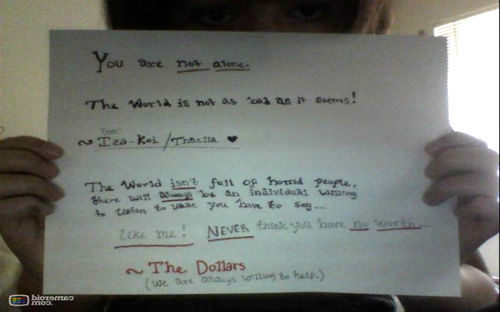 You are not alone.
The World is not as bad as it seems!
~ Iza-Koi / Thaelia ♥
The World isn't full of horrid people,
there will always be an individual willing
to listen to what you have to say...
like me! NEVER think you have no worth...
~ The Dollars
(We are always willing to help.)
cameroid.com